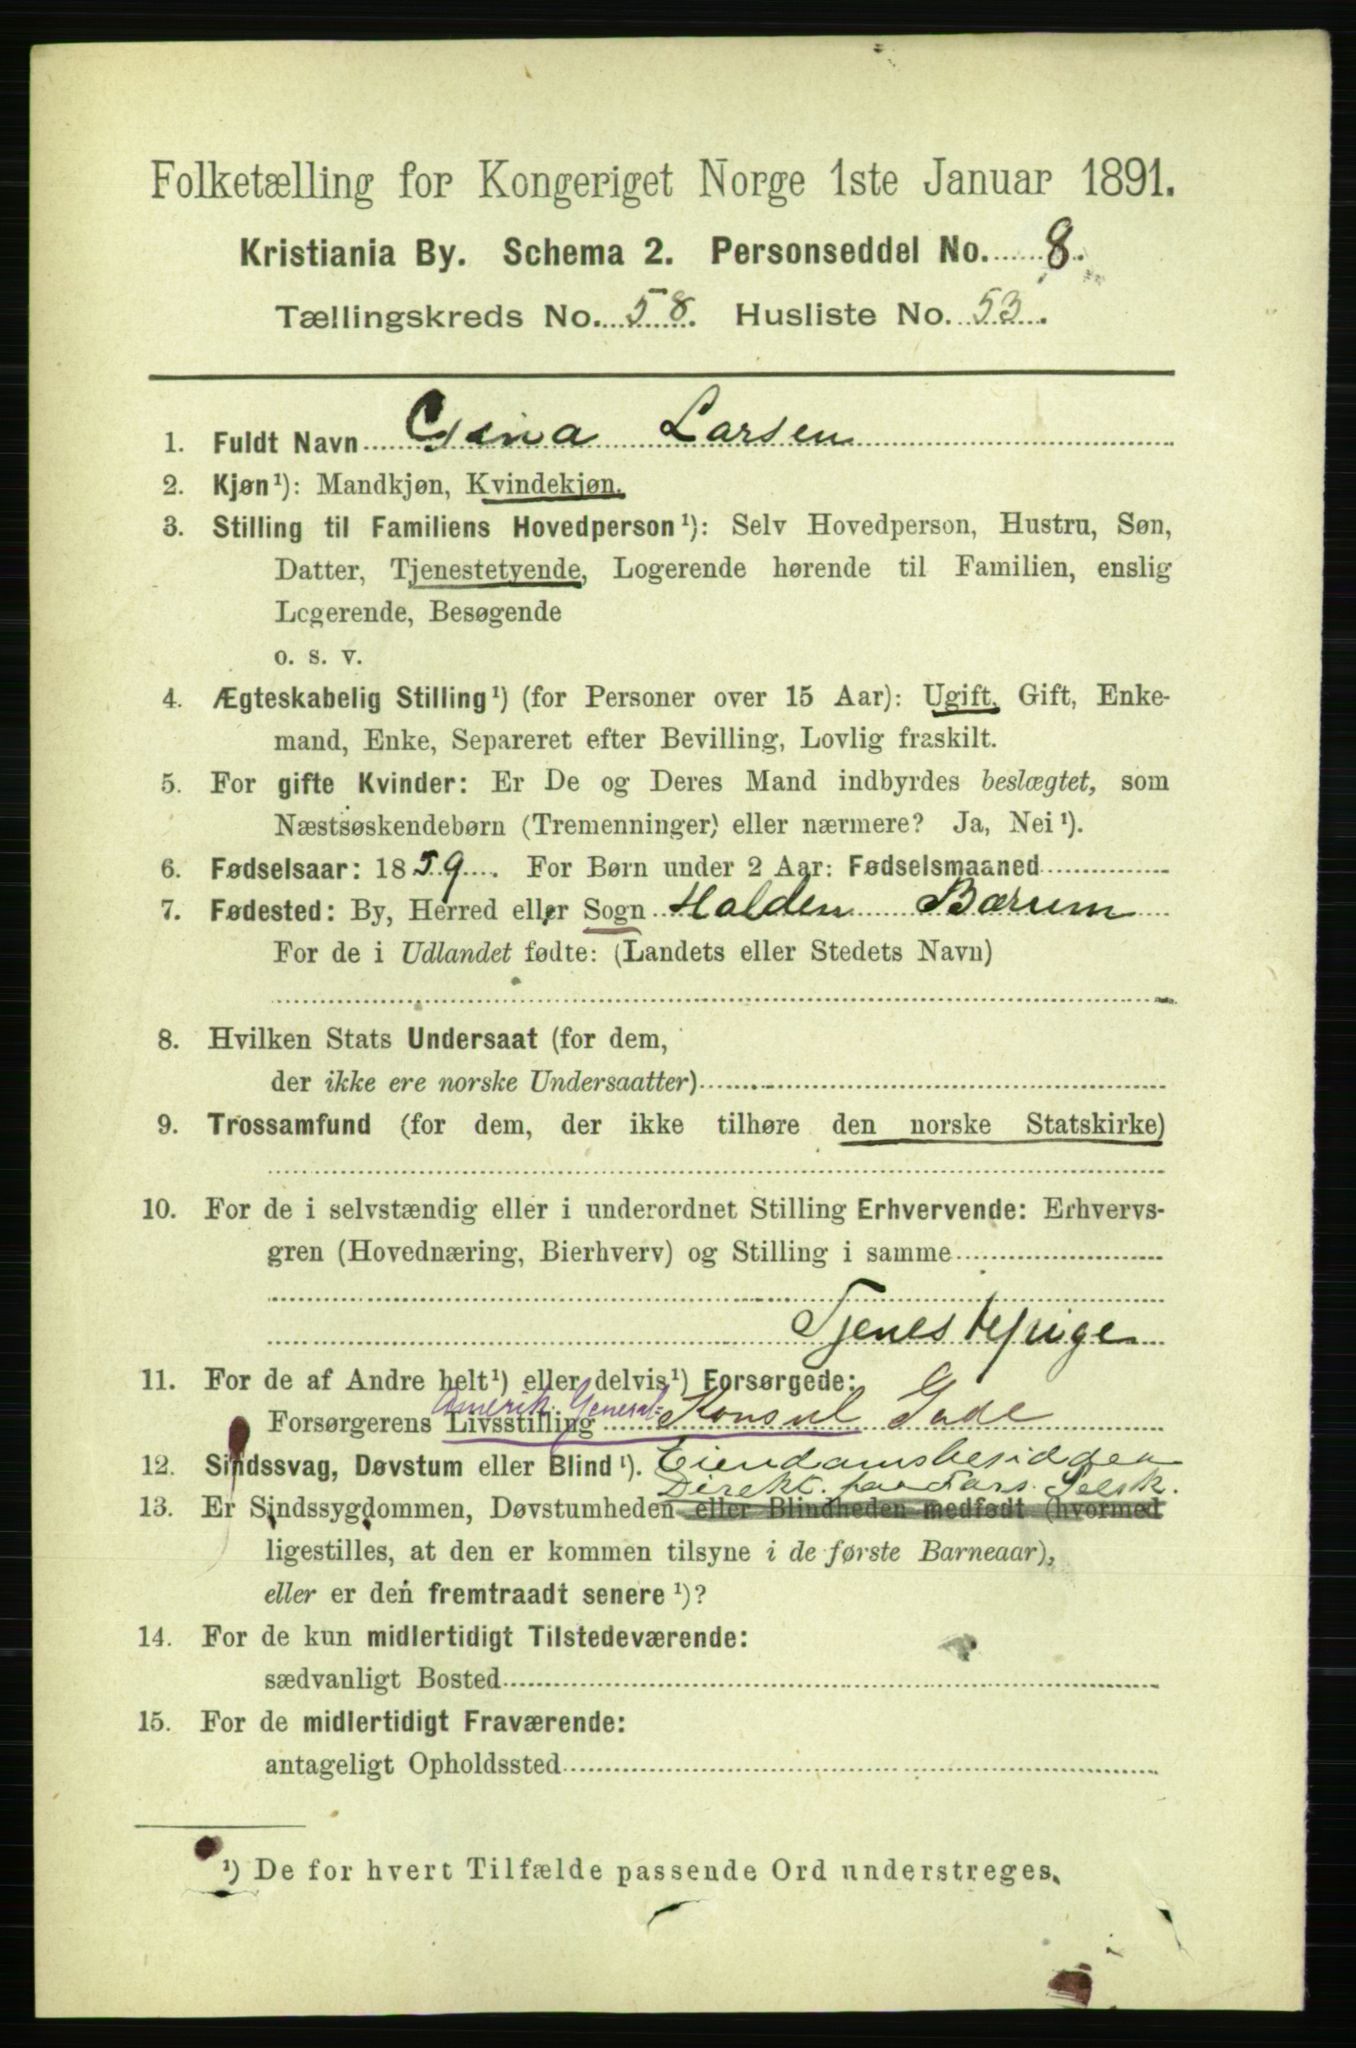 Folketælling for Kongeriget Norge 1ste Januar 1891.
Kristiania By. Schema 2. Personseddel No. 8.
Tællingskreds No. 58. Husliste No. 53.
1. Fuldt Navn Gina Larsen
2. Kjøn¹): Mandkjøn, Kvindekjøn.
3. Stilling til Familiens Hovedperson¹): Selv Hovedperson, Hustru, Søn,
Datter, Tjenestetyende, Logerende hørende til Familien, enslig
Logerende, Besøgende
o. s. v.
4. Ægteskabelig Stilling¹) (for Personer over 15 Aar): Ugift, Gift, Enke-
mand, Enke, Separeret efter Bevilling, Lovlig fraskilt.
5. For gifte Kvinder: Er De og Deres Mand indbyrdes beslægtet, som
Næstsøskendebørn (Tremenninger) eller nærmere? Ja, Nei¹).
6. Fødselsaar: 1859. For Børn under 2 Aar: Fødselsmaaned
7. Fødested: By, Herred eller Sogn Halden Bærum
For de i Udlandet fødte: (Landets eller Stedets Navn)
8. Hvilken Stats Undersaat (for dem,
der ikke ere norske Undersaatter)
9. Trossamfund (for dem, der ikke tilhøre den norske Statskirke)
10. For de i selvstændig eller i underordnet Stilling Erhvervende: Erhvervs-
gren (Hovednæring, Bierhverv) og Stilling i samme
Tjenestepige
11. For de af Andre helt¹) eller delvis¹) Forsørgede:
Amerik. General-
Forsørgerens Livsstilling Konsul Gade
12. Sindssvag, Døvstum eller Blind¹). Eiendamsbesidder
Direkt. for Fors. Selsk.
13. Er Sindssygdommen, Døvstumheden eller Blindheden medfødt (hvormed
ligestilles, at den er kommen tilsyne i de første Barneaar),
eller er den fremtraadt senere¹)?
14. For de kun midlertidigt Tilstedeværende:
sædvanligt Bosted
15. For de midlertidigt Fraværende:
antageligt Opholdssted
¹) De for hvert Tilfælde passende Ord understreges.